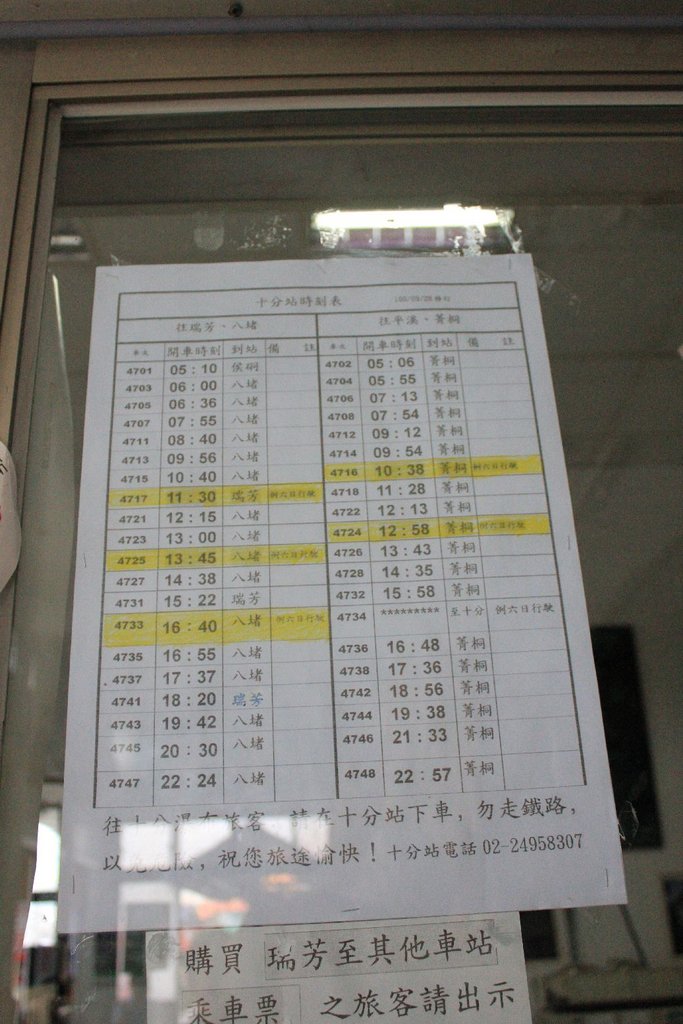 十分站時刻表 100/09/28修行
往瑞芳、八堵 往平溪、菁桐
車次 開車時刻 到站 備 註 車次 開車時刻 到站 備 註
4701 05:10 侯硐 4702 05:06 菁桐
4703 06:00 八堵 4704 05:55 菁桐
4705 06:36 八堵 4706 07:13 菁桐
4707 07:55 八堵 4708 07:54 菁桐
4711 08:40 八堵 4712 09:12 菁桐
4713 09:56 八堵 4714 09:54 菁桐
4715 10:40 八堵 4716 10:38 菁桐 例六日行駛
4717 11:30 瑞芳 例六日行駛 4718 11:28 菁桐
4721 12:15 八堵 4722 12:13 菁桐
4723 13:00 八堵 4724 12:58 菁桐 例六日行駛
4725 13:45 八堵 例六日行駛 4726 13:43 菁桐
4727 14:38 八堵 4728 14:35 菁桐
4731 15:22 瑞芳 4732 15:58 菁桐
4733 16:40 八堵 例六日行駛 4734 ********* 至十分 例六日行駛
4735 16:55 八堵 4736 16:48 菁桐
4737 17:37 八堵 4738 17:36 菁桐
4741 18:20 瑞芳 4742 18:56 菁桐
4743 19:42 八堵 4744 19:38 菁桐
4745 20:30 八堵 4746 21:33 菁桐
4747 22:24 八堵 4748 22:57 菁桐
往十分瀑布旅客 請在十分站下車，勿走鐵路，
以免危險，祝您旅途愉快！十分站電話 02-24958307
購買 瑞芳至其他車站
乘車票 之旅客請出示